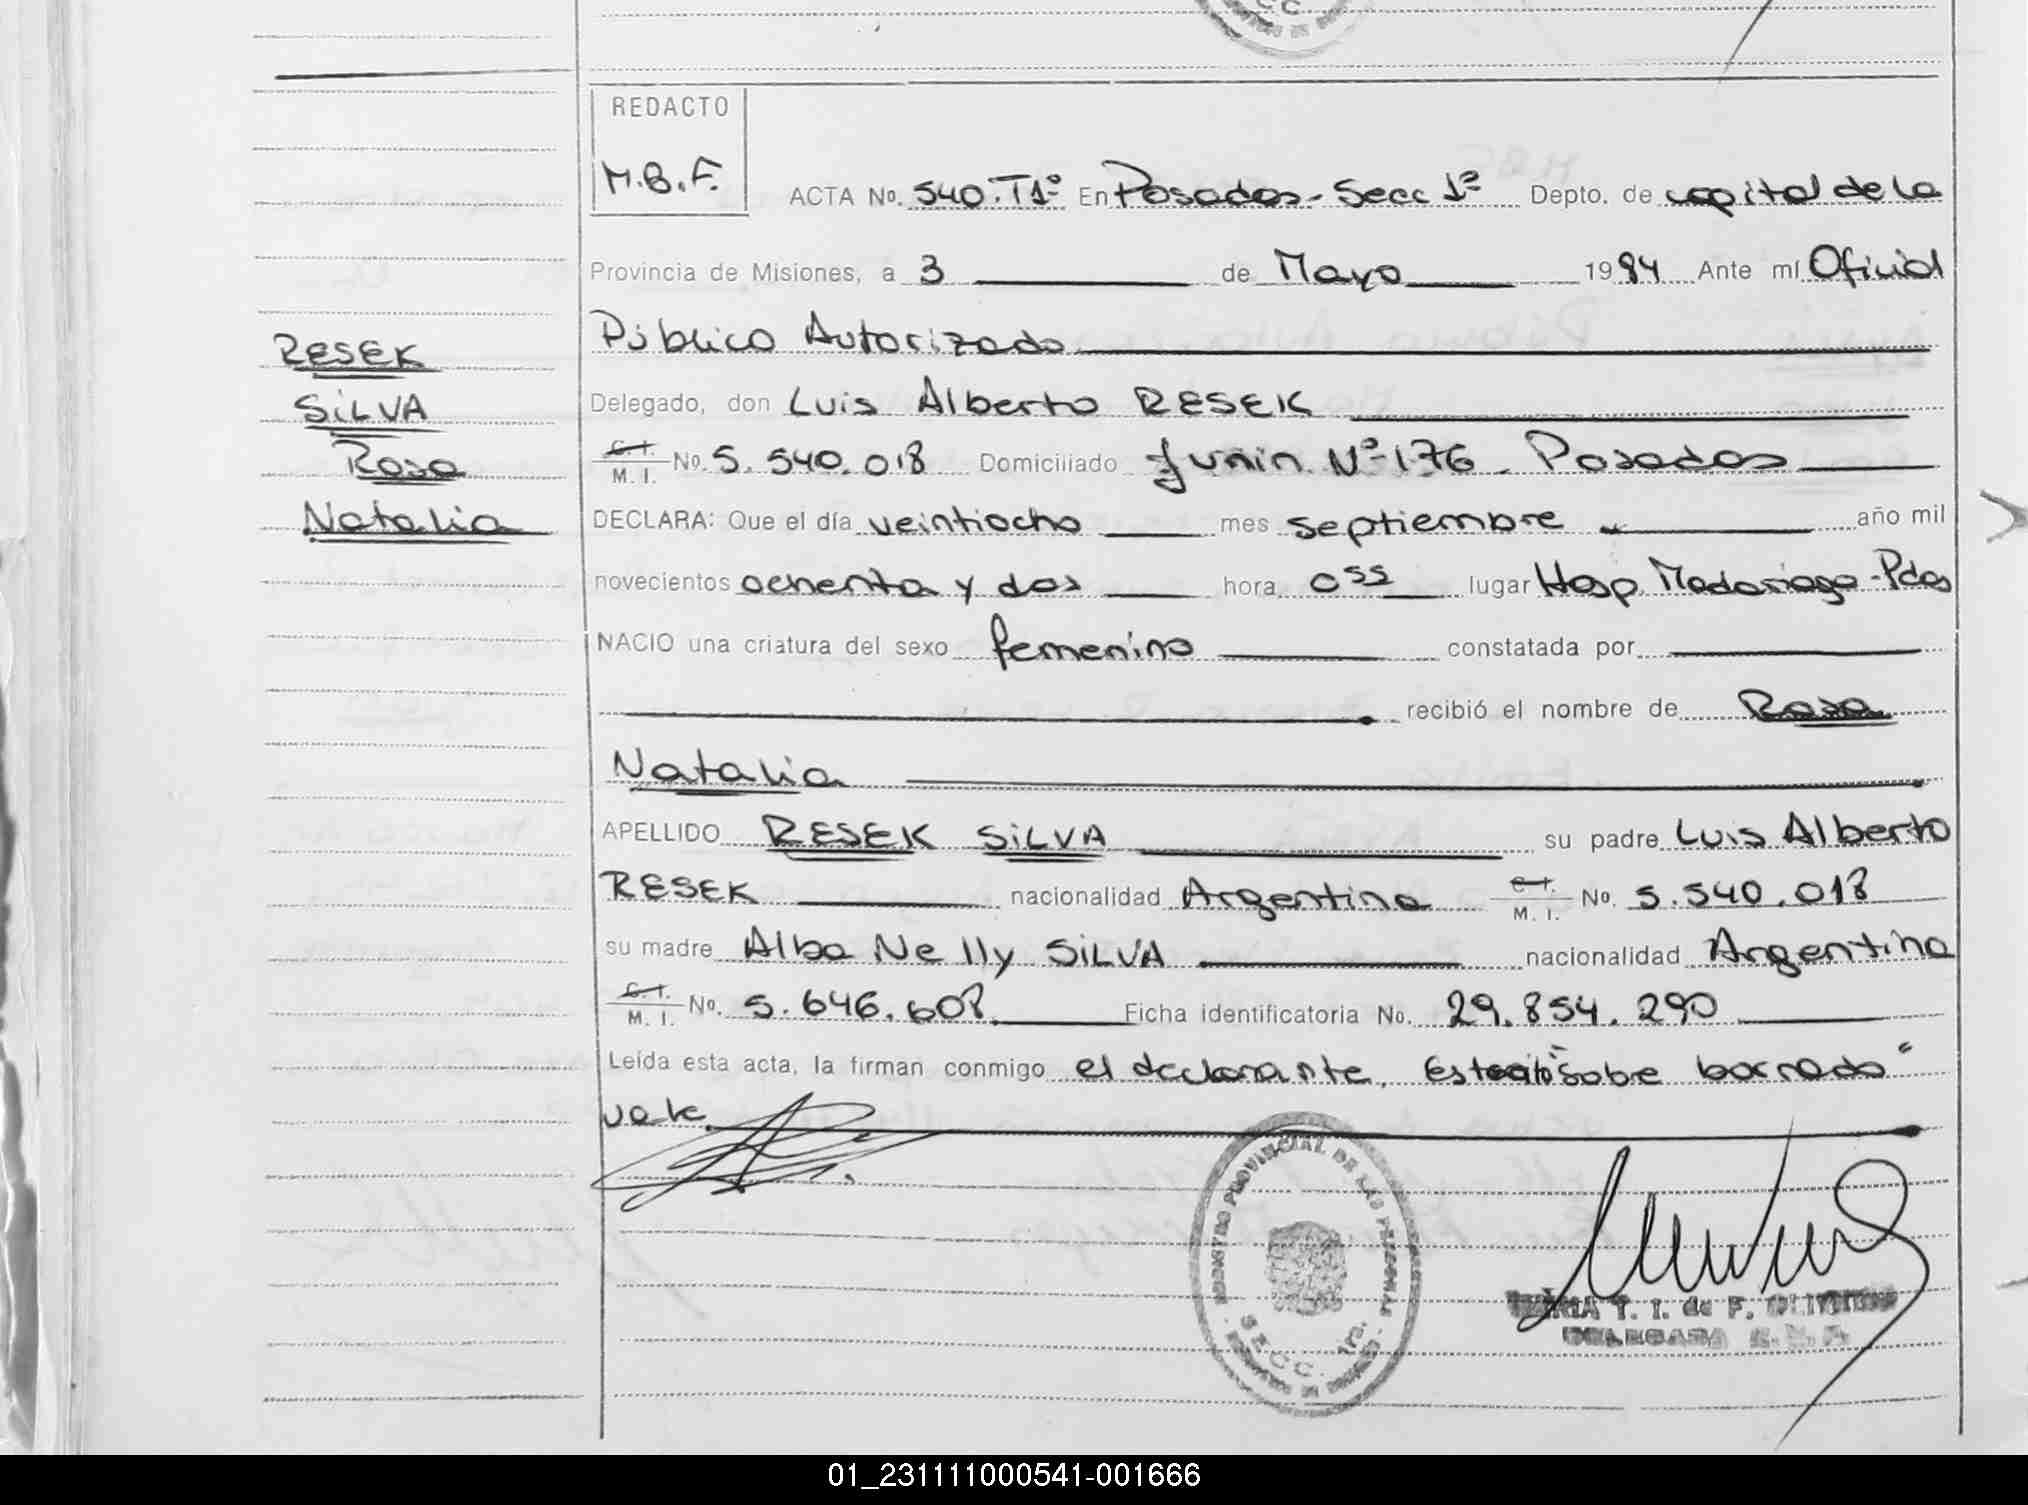 REDACTO
M.B.F.
ACTA No. 540.T1º En Posadas - Secc 1ª Depto. de capital de la
Provincia de Misiones, a 3 de Mayo 1984 Ante mí Oficial
Público Autorizado
RESEK
SiLVA
Rosa
Natalia
Delegado, don Luis Alberto RESEK
C.I. M.I. No. 5.540.018 Domiciliado Junin Nº 176 - Posadas
DECLARA: Que el día veintiocho mes septiembre año mil
novecientos ochenta y dos hora 0⁵⁵ lugar Hosp. Madariaga - Pdas
NACIO una criatura del sexo femenino constatada por
recibió el nombre de Rosa
Natalia
APELLIDO RESEK SiLVA su padre Luis Alberto
RESEK nacionalidad Argentina C.I. M.I. No. 5.540.018
su madre Alba Nelly SiLVA nacionalidad Argentina
C.I. M.I. No. 5.646.608 Ficha identificatoria No. 29.854.290
Leída esta acta, la firman conmigo el declarante, "sobre borrado"
vale
REGISTRO PROVINCIAL DE LAS PERSONAS
SECC. 1ra.
T. I. de F.
DELEGADA
01_231111000541-001666